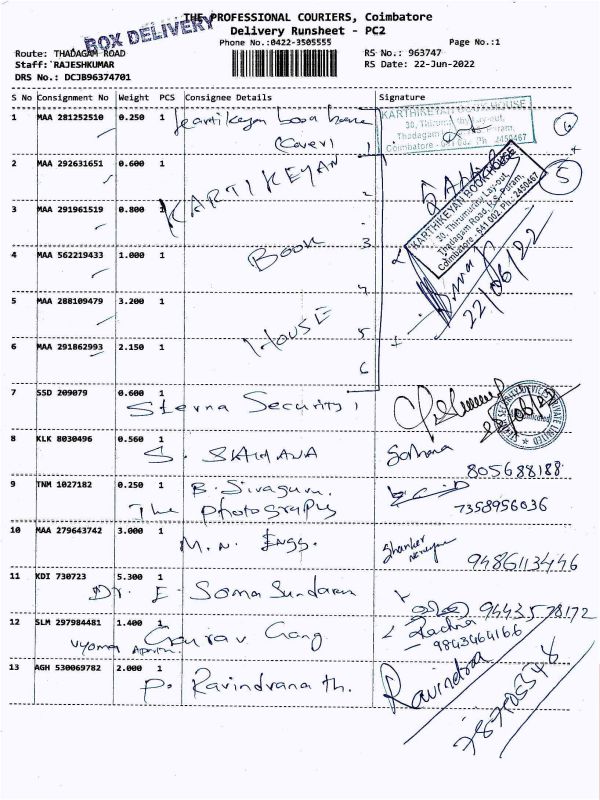 THE PROFESSIONAL COURIERS, Coimbatore
BOX DELIVERY
Delivery Runsheet - PC2
Phone No.:0422-3505555
Page No.:1
Route: THADAGAM ROAD
RS No.: 963747
Staff: RAJESHKUMAR
RS Date: 22-Jun-2022
DRS No.: DCJB96374701
S No Consignment No Weight PCS Consignee Details Signature
1 MAA 281252510 0.250 1
(Cover) 1
KARTHIKEYAN BOOK HOUSE
30, Thirumurthy Lay-out,
Thadagam Road, R.S. Puram,
Coimbatore - 641 002. Ph : 2450467
6
2 MAA 292631651 0.600 1 KARTIKEYAN 2
KARTHIKEYAN BOOK HOUSE
30, Thirumurthy Lay-out,
Thadagam Road, R.S. Puram,
Coimbatore - 641 002. Ph : 2450467
5
3 MAA 291961519 0.800 1 3
4 MAA 562219433 1.000 1 Book 4
22/06/22
5 MAA 288109479 3.200 1 House 5
6 MAA 291862993 2.150 1 6
7 SSD 209079 0.600 1
Sterna Security 1
8 KLK 8030496 0.560 1
S. SAHANA
Sahana
805688188
9 TNM 1027182 0.250 1 B. Sivaguru.
The Photography
7358956036
10 MAA 279643742 3.000 1
M. N. Engg.
Shanker
9486113446
11 KDI 730723 5.300 1
Dr. E. Soma Sundaram
9443578172
12 SLM 297984481 1.400 1
Vyoma Gourav Gang
Rachna
9843464166
13 AGH 530069782 2.000 1
P. Ravindrana th.
Ravindran